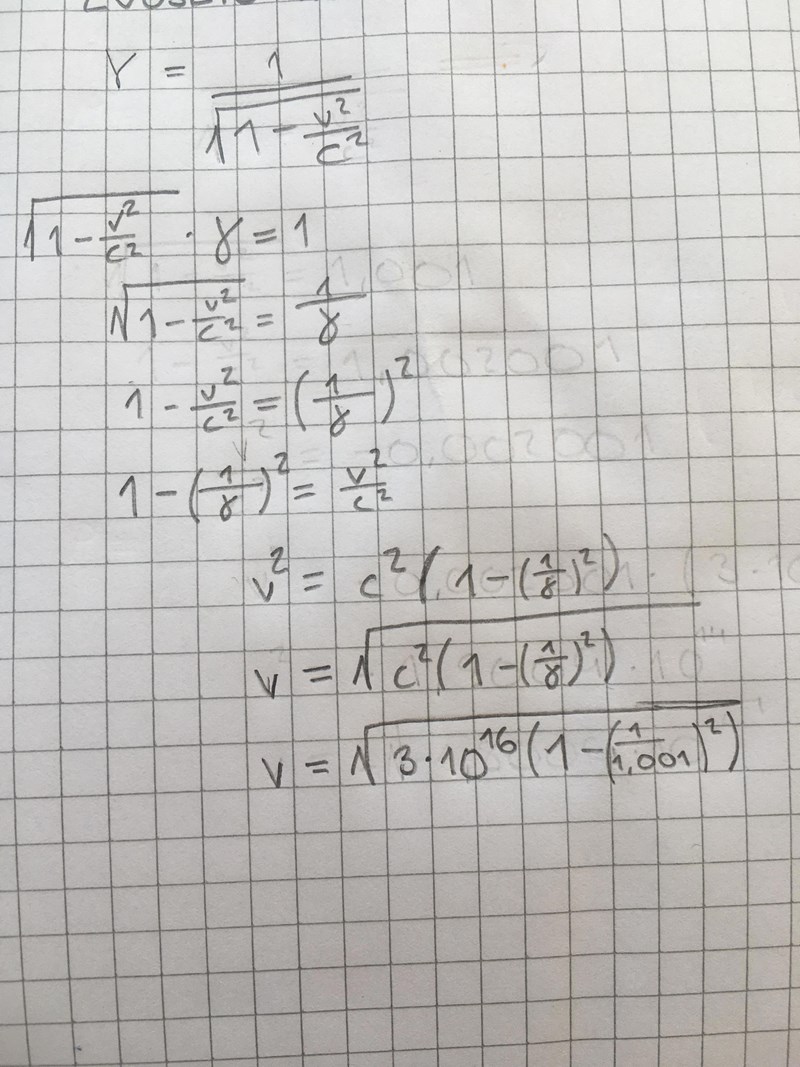 γ = 1/√(1 - v²/c²)
√(1 - v²/c²) · γ = 1
√(1 - v²/c²) = 1/γ
1 - v²/c² = (1/γ)²
1 - (1/γ)² = v²/c²
v² = c²(1 - (1/γ)²)
v = √(c²(1 - (1/γ)²))
v = √(3·10¹⁶(1 - (1/1,001)²))